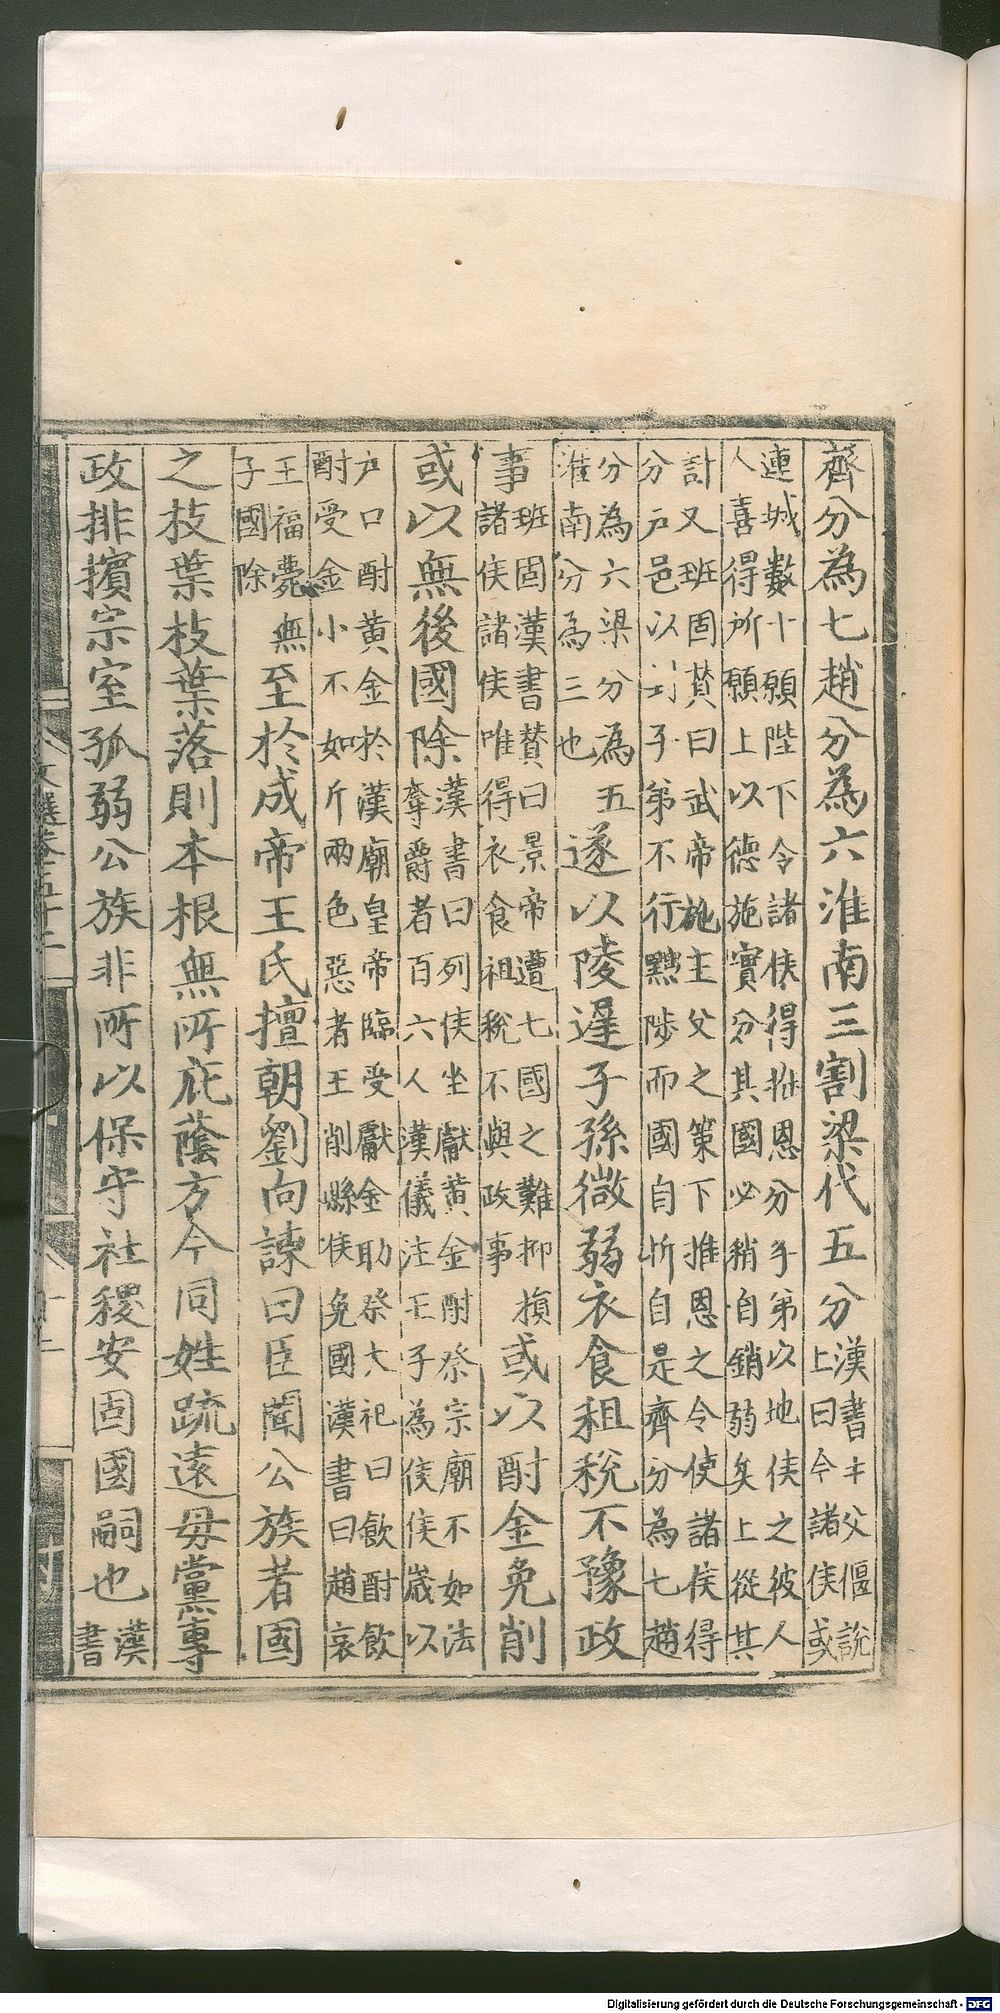 齊分為七趙分為六淮南三割梁代五分漢書主父偃說上曰今諸侯或
連城數十願陛下令諸侯得推恩分子弟以地侯之彼人人喜得所願上以德施實分其國必稍自銷弱矣上從其
計又班固賛曰武帝施主父之策下推恩之令使諸侯得分戶邑以封子弟不行黜陟而國自析自是齊分為七趙
分為六梁分為五淮南分為三也遂以陵遲子孫微弱衣食租稅不豫政
事班固漢書賛曰景帝遭七國之難抑損諸侯諸侯唯得衣食租稅不與政事或以酎金免削
或以無後國除漢書曰列侯坐獻黃金酎祭宗廟不如法奪爵者百六人漢儀注王子為侯侯歲以
戶口酎黃金於漢廟皇帝臨受獻金助祭大祀曰飲酎飲酎受金小不如斤兩色惡者王削縣侯免國漢書曰趙哀
王福薨無子國除至於成帝王氏擅朝劉向諫曰臣聞公族者國
之枝葉枝葉落則本根無所庇蔭方今同姓疏遠毋黨專
政排擯宗室孤弱公族非所以保守社稷安固國嗣也漢書
文選卷五十二
Digitalisierung gefördert durch die Deutsche Forschungsgemeinschaft - DFG